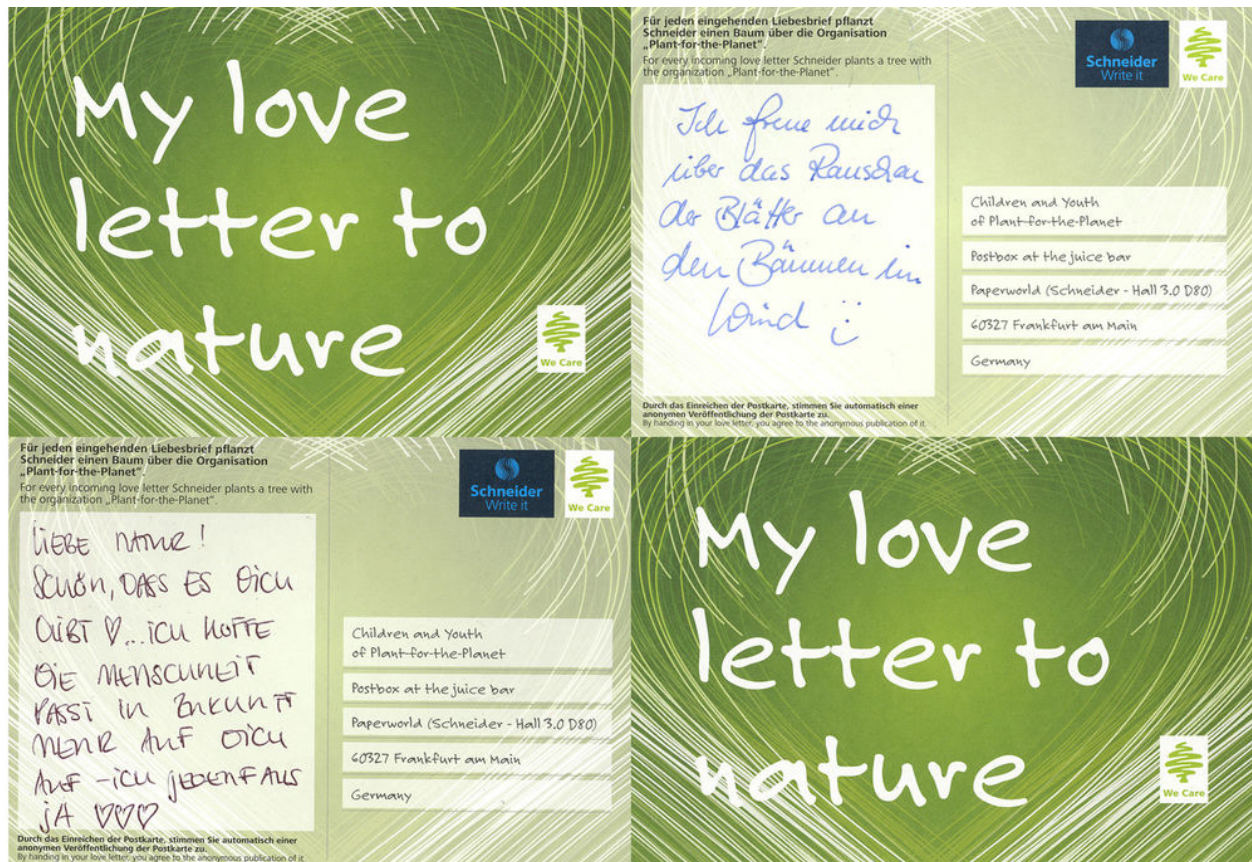 My love
letter to
nature
We Care
Für jeden eingehenden Liebesbrief pflanzt
Schneider einen Baum über die Organisation
„Plant-for-the-Planet“.
For every incoming love letter Schneider plants a tree with
the organization „Plant-for-the-Planet“.
Schneider
Write it
We Care
Ich freue mich
über das Rauschen
der Blätter an
den Bäumen im
Wind
Children and Youth
of Plant-for-the-Planet
Postbox at the juice bar
Paperworld (Schneider - Hall 3.0 D80)
60327 Frankfurt am Main
Germany
Durch das Einreichen der Postkarte, stimmen Sie automatisch einer
anonymen Veröffentlichung der Postkarte zu.
By handing in your love letter, you agree to the anonymous publication of it.
Für jeden eingehenden Liebesbrief pflanzt
Schneider einen Baum über die Organisation
„Plant-for-the-Planet“.
For every incoming love letter Schneider plants a tree with
the organization „Plant-for-the-Planet“.
Schneider
Write it
We Care
LIEBE NATUR!
SCHÖN, DASS ES DICH
GIBT ♡...ICH HOFFE
DIE MENSCHHEIT
PASST IN ZUKUNFT
MEHR AUF DICH
AUF - ICH JEDENFALLS
JA ♡♡♡
Children and Youth
of Plant-for-the-Planet
Postbox at the juice bar
Paperworld (Schneider - Hall 3.0 D80)
60327 Frankfurt am Main
Germany
Durch das Einreichen der Postkarte, stimmen Sie automatisch einer
anonymen Veröffentlichung der Postkarte zu.
By handing in your love letter, you agree to the anonymous publication of it
My love
letter to
nature
We Care